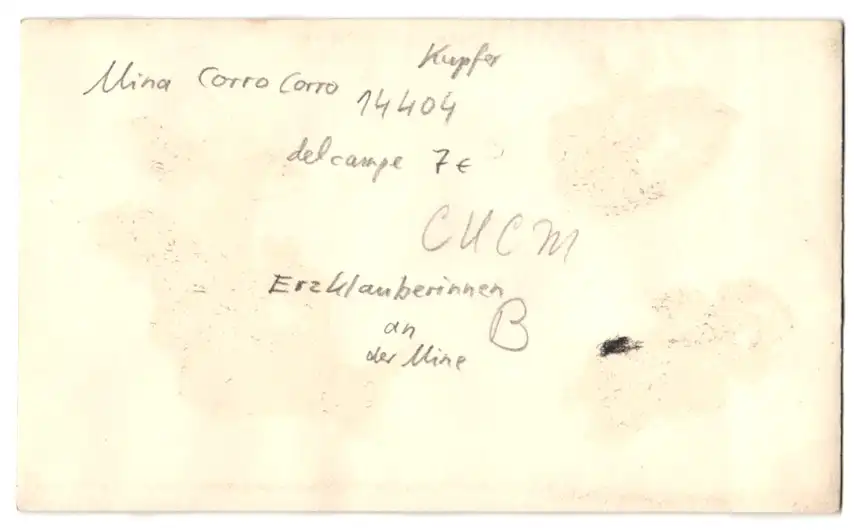 Kupfer
Mina Corro Corro
14404
delcampe 7€
CUCM
Erzklauberinnen
an
der Mine
B